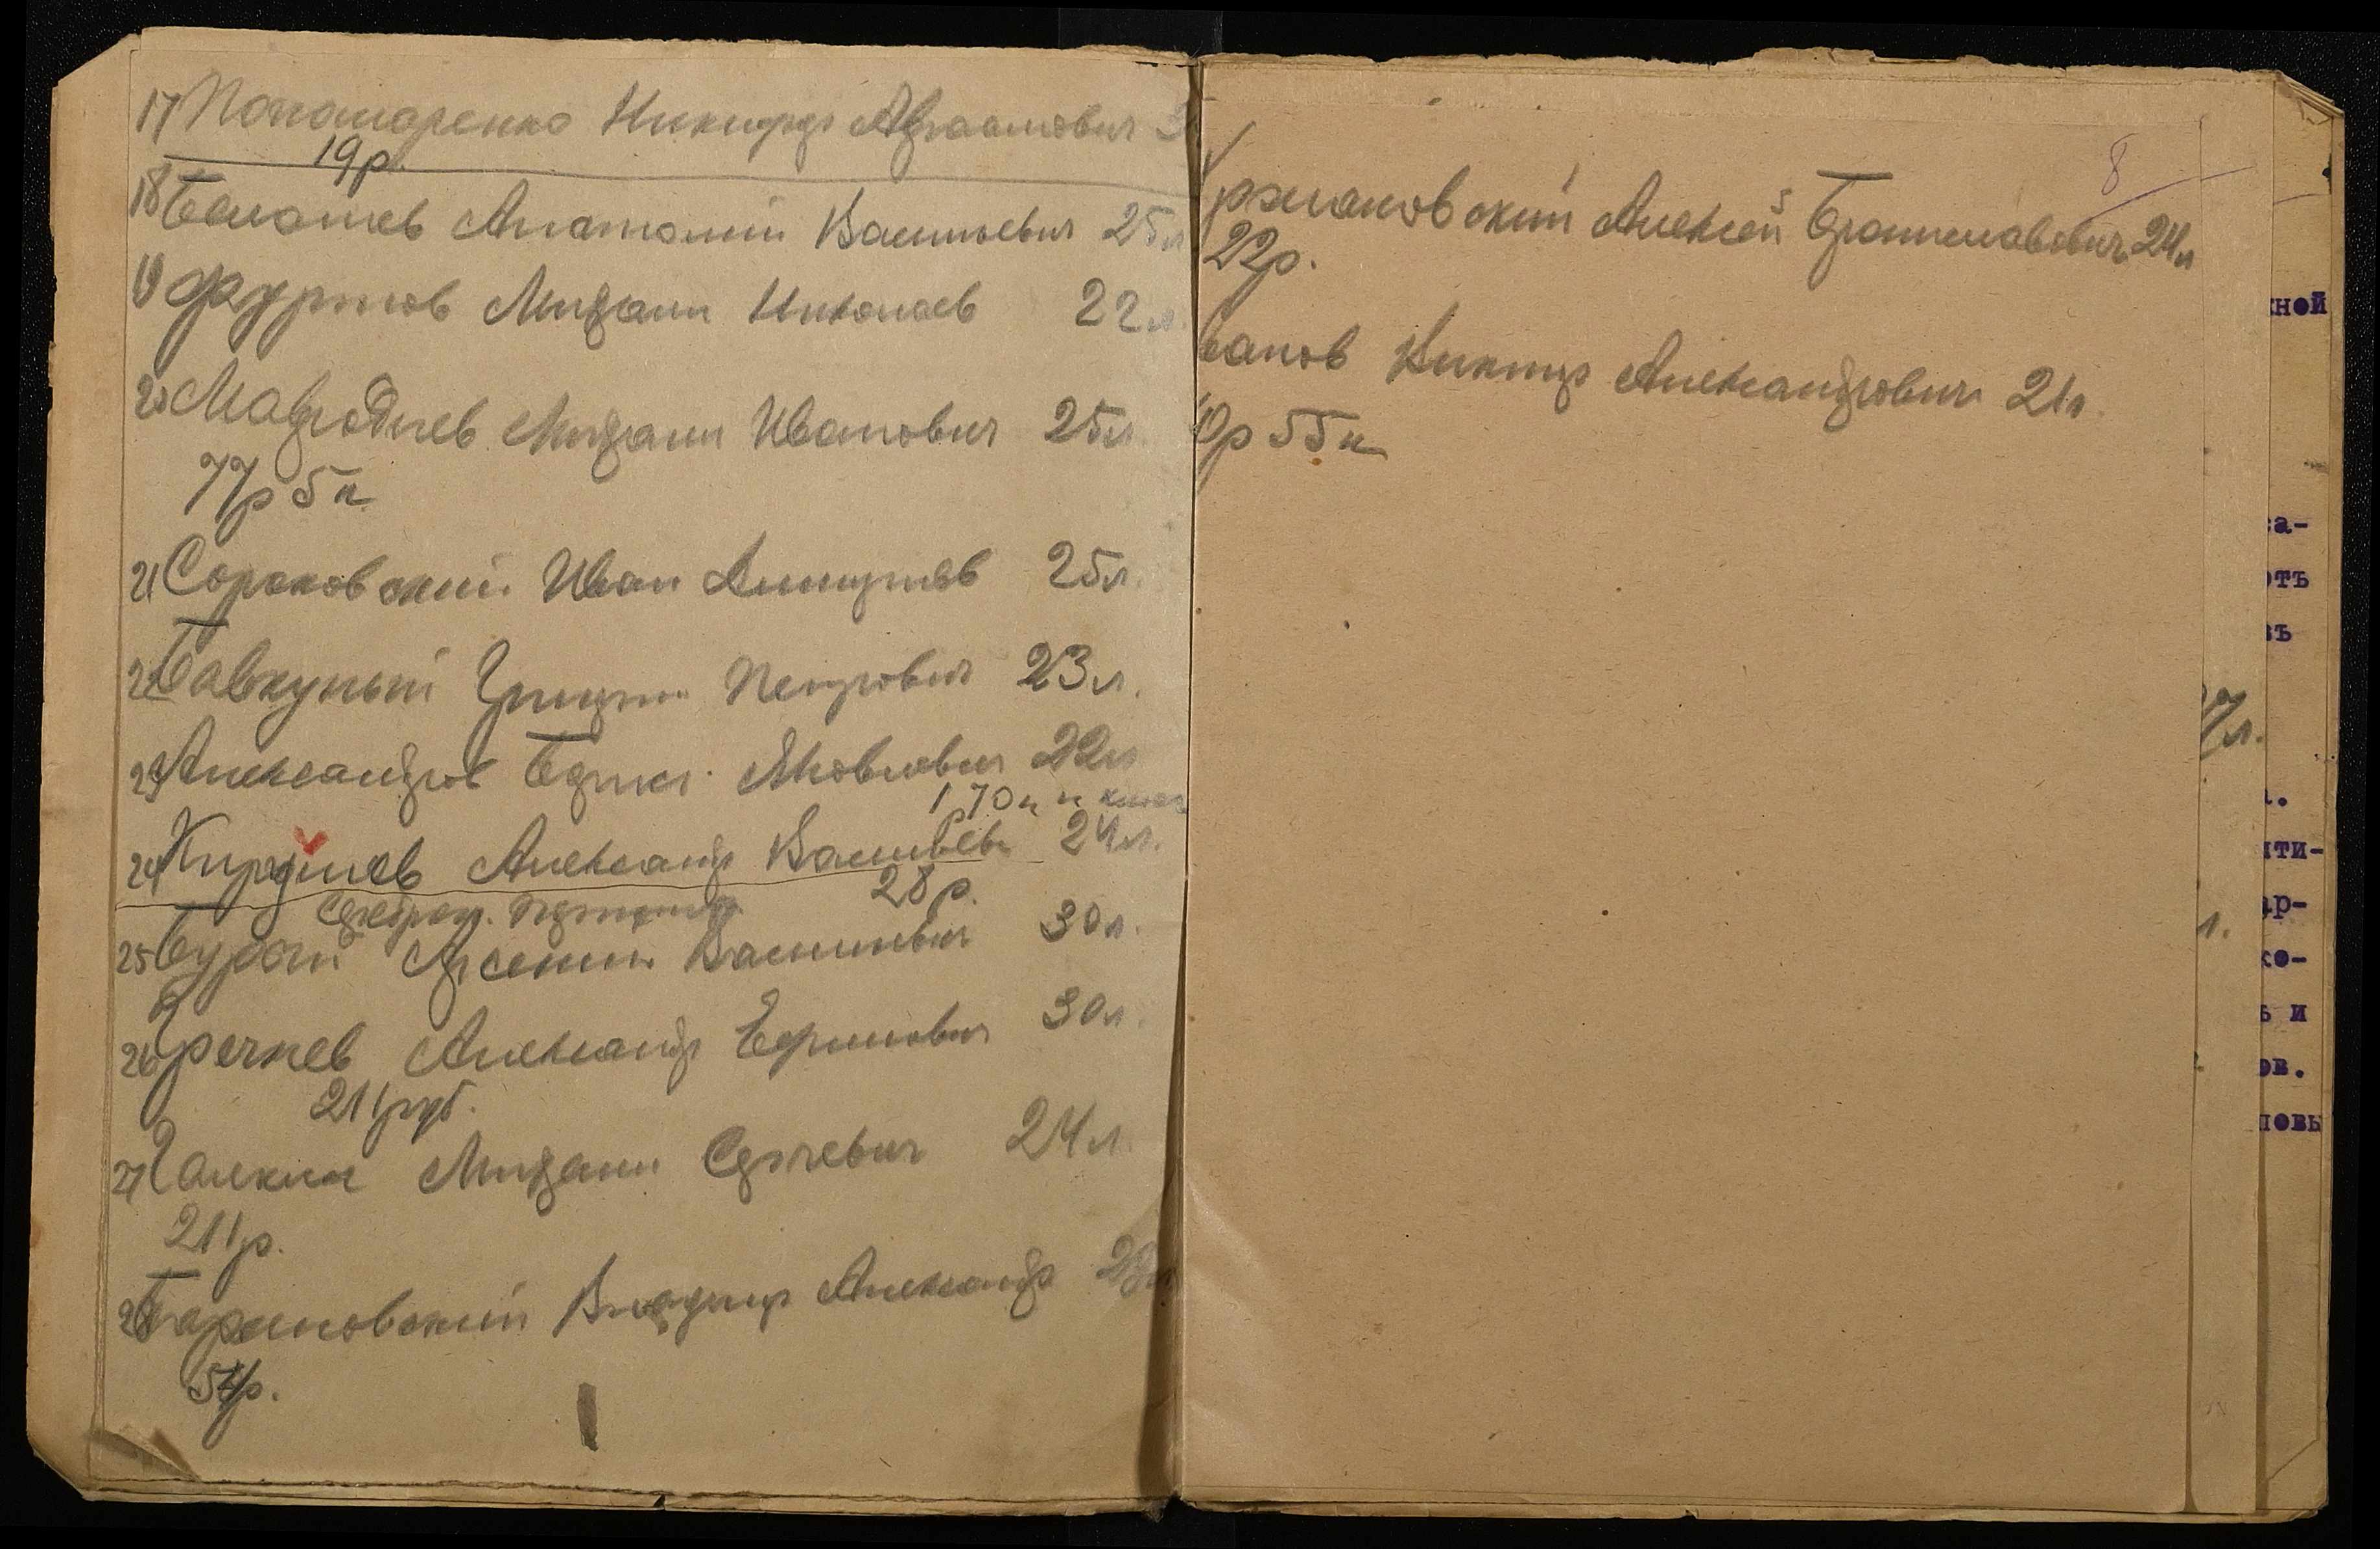 17 Пономаренко Никифор Авраамович 3
19р.
18 Балашев Анатолий Васильевич 25л
19 Фуртов Михаил Николаев 22л.
20 Мавродиев Михаил Иванович 25л.
77р 5к
21 Сороковский Иван Дмитриев 25л.
22 Бавкуный Григорий Петрович 23л.
23 Александров Борис Яковлевич 22л
1р 70к и ключ
24 Кирдяшев Александр Васильев 24л.
28р.
25 Бурый Арсений Васильевич 30л.
26 Гречнев Александр Ефимович 30л.
211руб.
27 Галкин Михаил Сергеевич 24л.
211р.
28 Барановский Владимир Александр 23л
54р.
8
ржановский Алексей Брониславович 24л
22р.
ванов Виктор Александрович 21г.
10р 55к
жной
са-
отъ
въ
7л.
л.
ити-
ар-
л.
ко-
ь и
ов.
новы